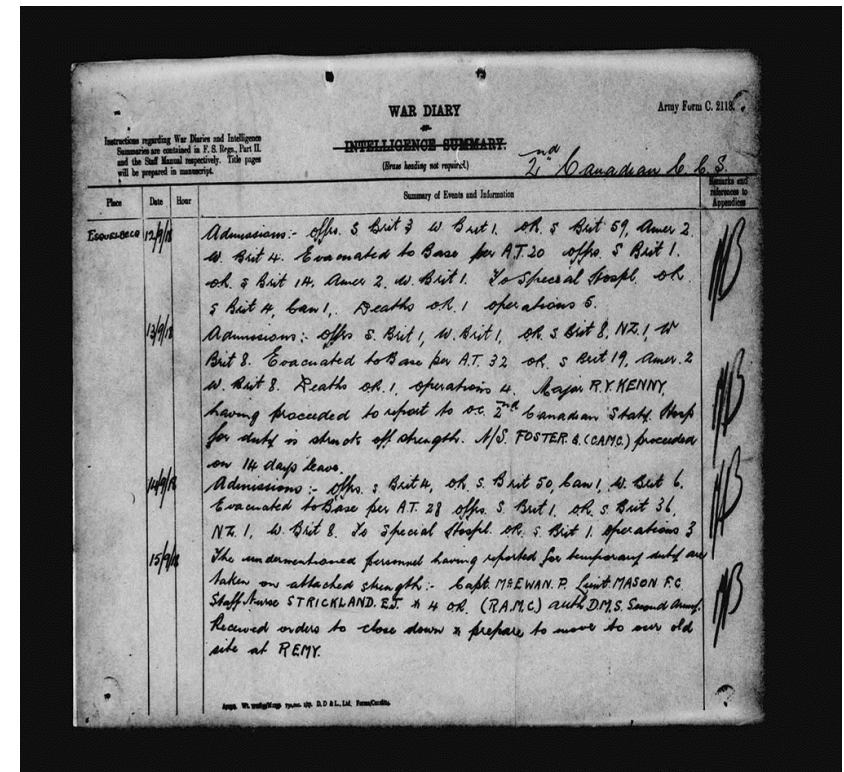 WAR DIARY
or
INTELLIGENCE SUMMARY.
(Erase heading not required.)
Army Form C. 2118.
Instructions regarding War Diaries and Intelligence
Summaries are contained in F. S. Regs., Part II.
and the Staff Manual respectively. Title pages
will be prepared in manuscript.
2nd Canadian C.C.S.
Place Date Hour Summary of Events and Information Remarks and references to Appendices
ESQUELBECQ 12/9/18 Admissions:- offrs. S Brit 3 W Brit 1. OR. S Brit 59, Amer 2.
W. Brit 4. Evacuated to Base per A.T. 20 offrs. S Brit 1.
OR. S Brit 14. Amer 2. W. Brit 1. To Special Hospl. OR.
S Brit 4, Can 1,. Deaths OR. 1 operations 5.
13/9/18 Admissions:- offrs S. Brit 1, W. Brit 1, OR. S Brit 8, NZ. 1, W
Brit 8. Evacuated to Base per A.T. 32 OR. S Brit 19, Amer. 2
W. Brit 8. Deaths OR. 1, operations 4. Major R.Y. KENNY,
having proceeded to report to OC. 2nd Canadian Staty. Hosp
for duty is struck off strength. N/S. FOSTER (CAMC.) proceeded
on 14 days leave.
14/9/18 Admissions:- offrs. S Brit 4, OR. S. Brit 50, Can 1, W. Brit 6.
Evacuated to Base per A.T. 28 offrs. S. Brit 1. OR. S Brit 36,
NZ. 1, W. Brit 8. To Special Hospl. OR. S Brit 1. operations 3
15/9/18 The undermentioned personnel having reported for temporary duty are
taken on attached strength:- Capt. McEWAN. P. Lieut MASON F.C
Staff Nurse STRICKLAND. E.J. & 4 OR. (R.A.M.C) auth D.M.S. Second Army.
Received orders to close down & prepare to move to our old
site at REMY.
D. D & L., Ltd.